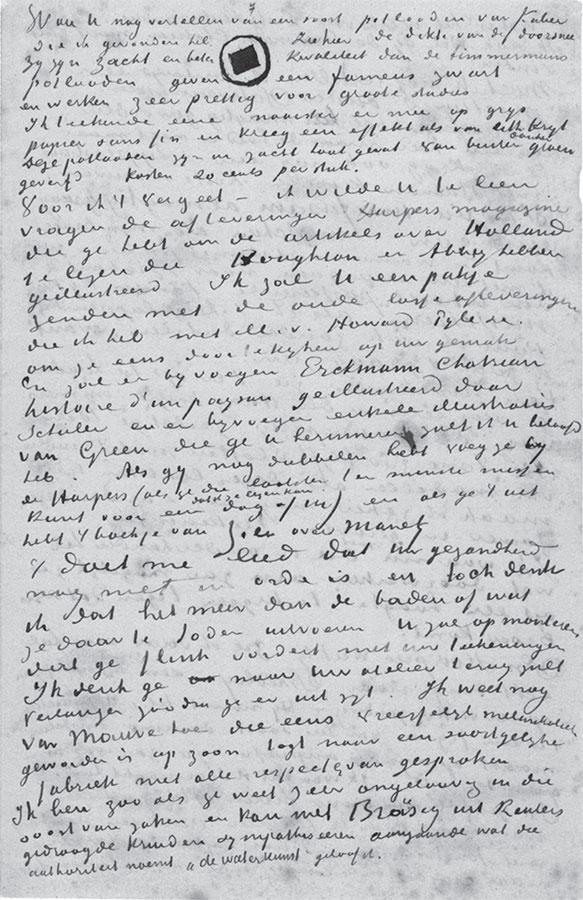 Wou U nog vertellen van een soort potlooden van Faber
die ik gevonden heb. Ziehier de dikte van de doorsnee
zy zyn zacht en beter kwaliteit dan de timmermans
potlooden geven een fameus zwart
en werken zeer prettig voor groote studies
Ik teekende eene naaister er mee op grys
papier sans fin en kreeg een effekt als van lith. kryt
donker
Deze potlooden zyn in zacht hout gevat van buiten groen
geverfd kosten 20 cents per stuk.
Voor ik 't vergeet – ik wilde U te leen
vragen de afleveringen Harpers magazine
die ge hebt om de artikels over Holland
te lezen die Boughton en Abbey hebben
geillustreerd. Ik zal U een pakje
zenden met de oude losse afleveringen
die ik heb met ill. v. Howard Pyle ze.
om je eens door te kyken op uw gemak
En zal er byvoegen Erckmann Chatrian
histoire d'un paysan geillustreerd door
Schuler en er byvoegen enkele illustraties
van Green die ge U herinneren zult ik U beloofd
heb. Als gy nog dubbelen hebt voeg ze by
de Harpers (als ge die losliet ten minste missen
kunt voor een dag of 14) en als ge 't uit
hebt 't boekje van Zola over Manet
't doet me leed dat uw gezondheid
nog niet in orde is en toch denk
ik dat het meer dan de baden of wat
ze daar te Soden uitvoeren U zal opmonteren
dat ge flink vordert met uw teekeningen
Ik denk ge naar uw atelier terug zult
verlangen zoodra ge er uit zyt. Ik weet nog
van Mauve hoe die eens vreesselyk melankoliek
geworden is op zoon togt naar een soortgelyke
fabriek met alle respect ervan gesproken
Ik ben zoo als ge weet zeer ongeloovig in die
soort van zaken en kan met Bräsig uit Reuters
gedroogde kruiden sympathiseren aangaande wat die
authoriteit noemt "de waterkunst" geloof ik.